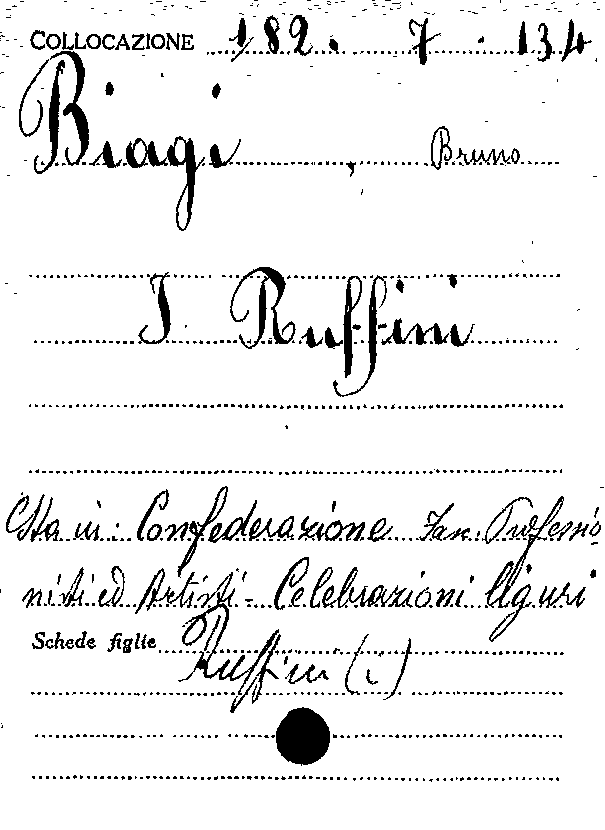 COLLOCAZIONE 182. 7. 134
Biagi, Bruno
I Ruffini
Sta in: Confederazione Fasc. Professio
nisti ed Artisti - Celebrazioni liguri
Schede figlie
Ruffini (i)